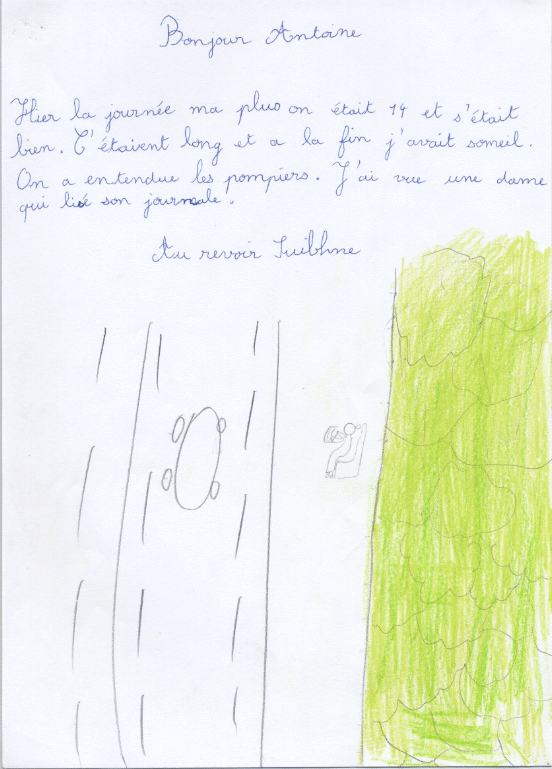 Bonjour Antoine
Hier la journée ma pluo on était 14 et s'était
bien. C'étaient long et a la fin j'avait someil.
On a entendue les pompiers. J'ai vue une dame
qui lisé son journale.
Au revoir Suibhne